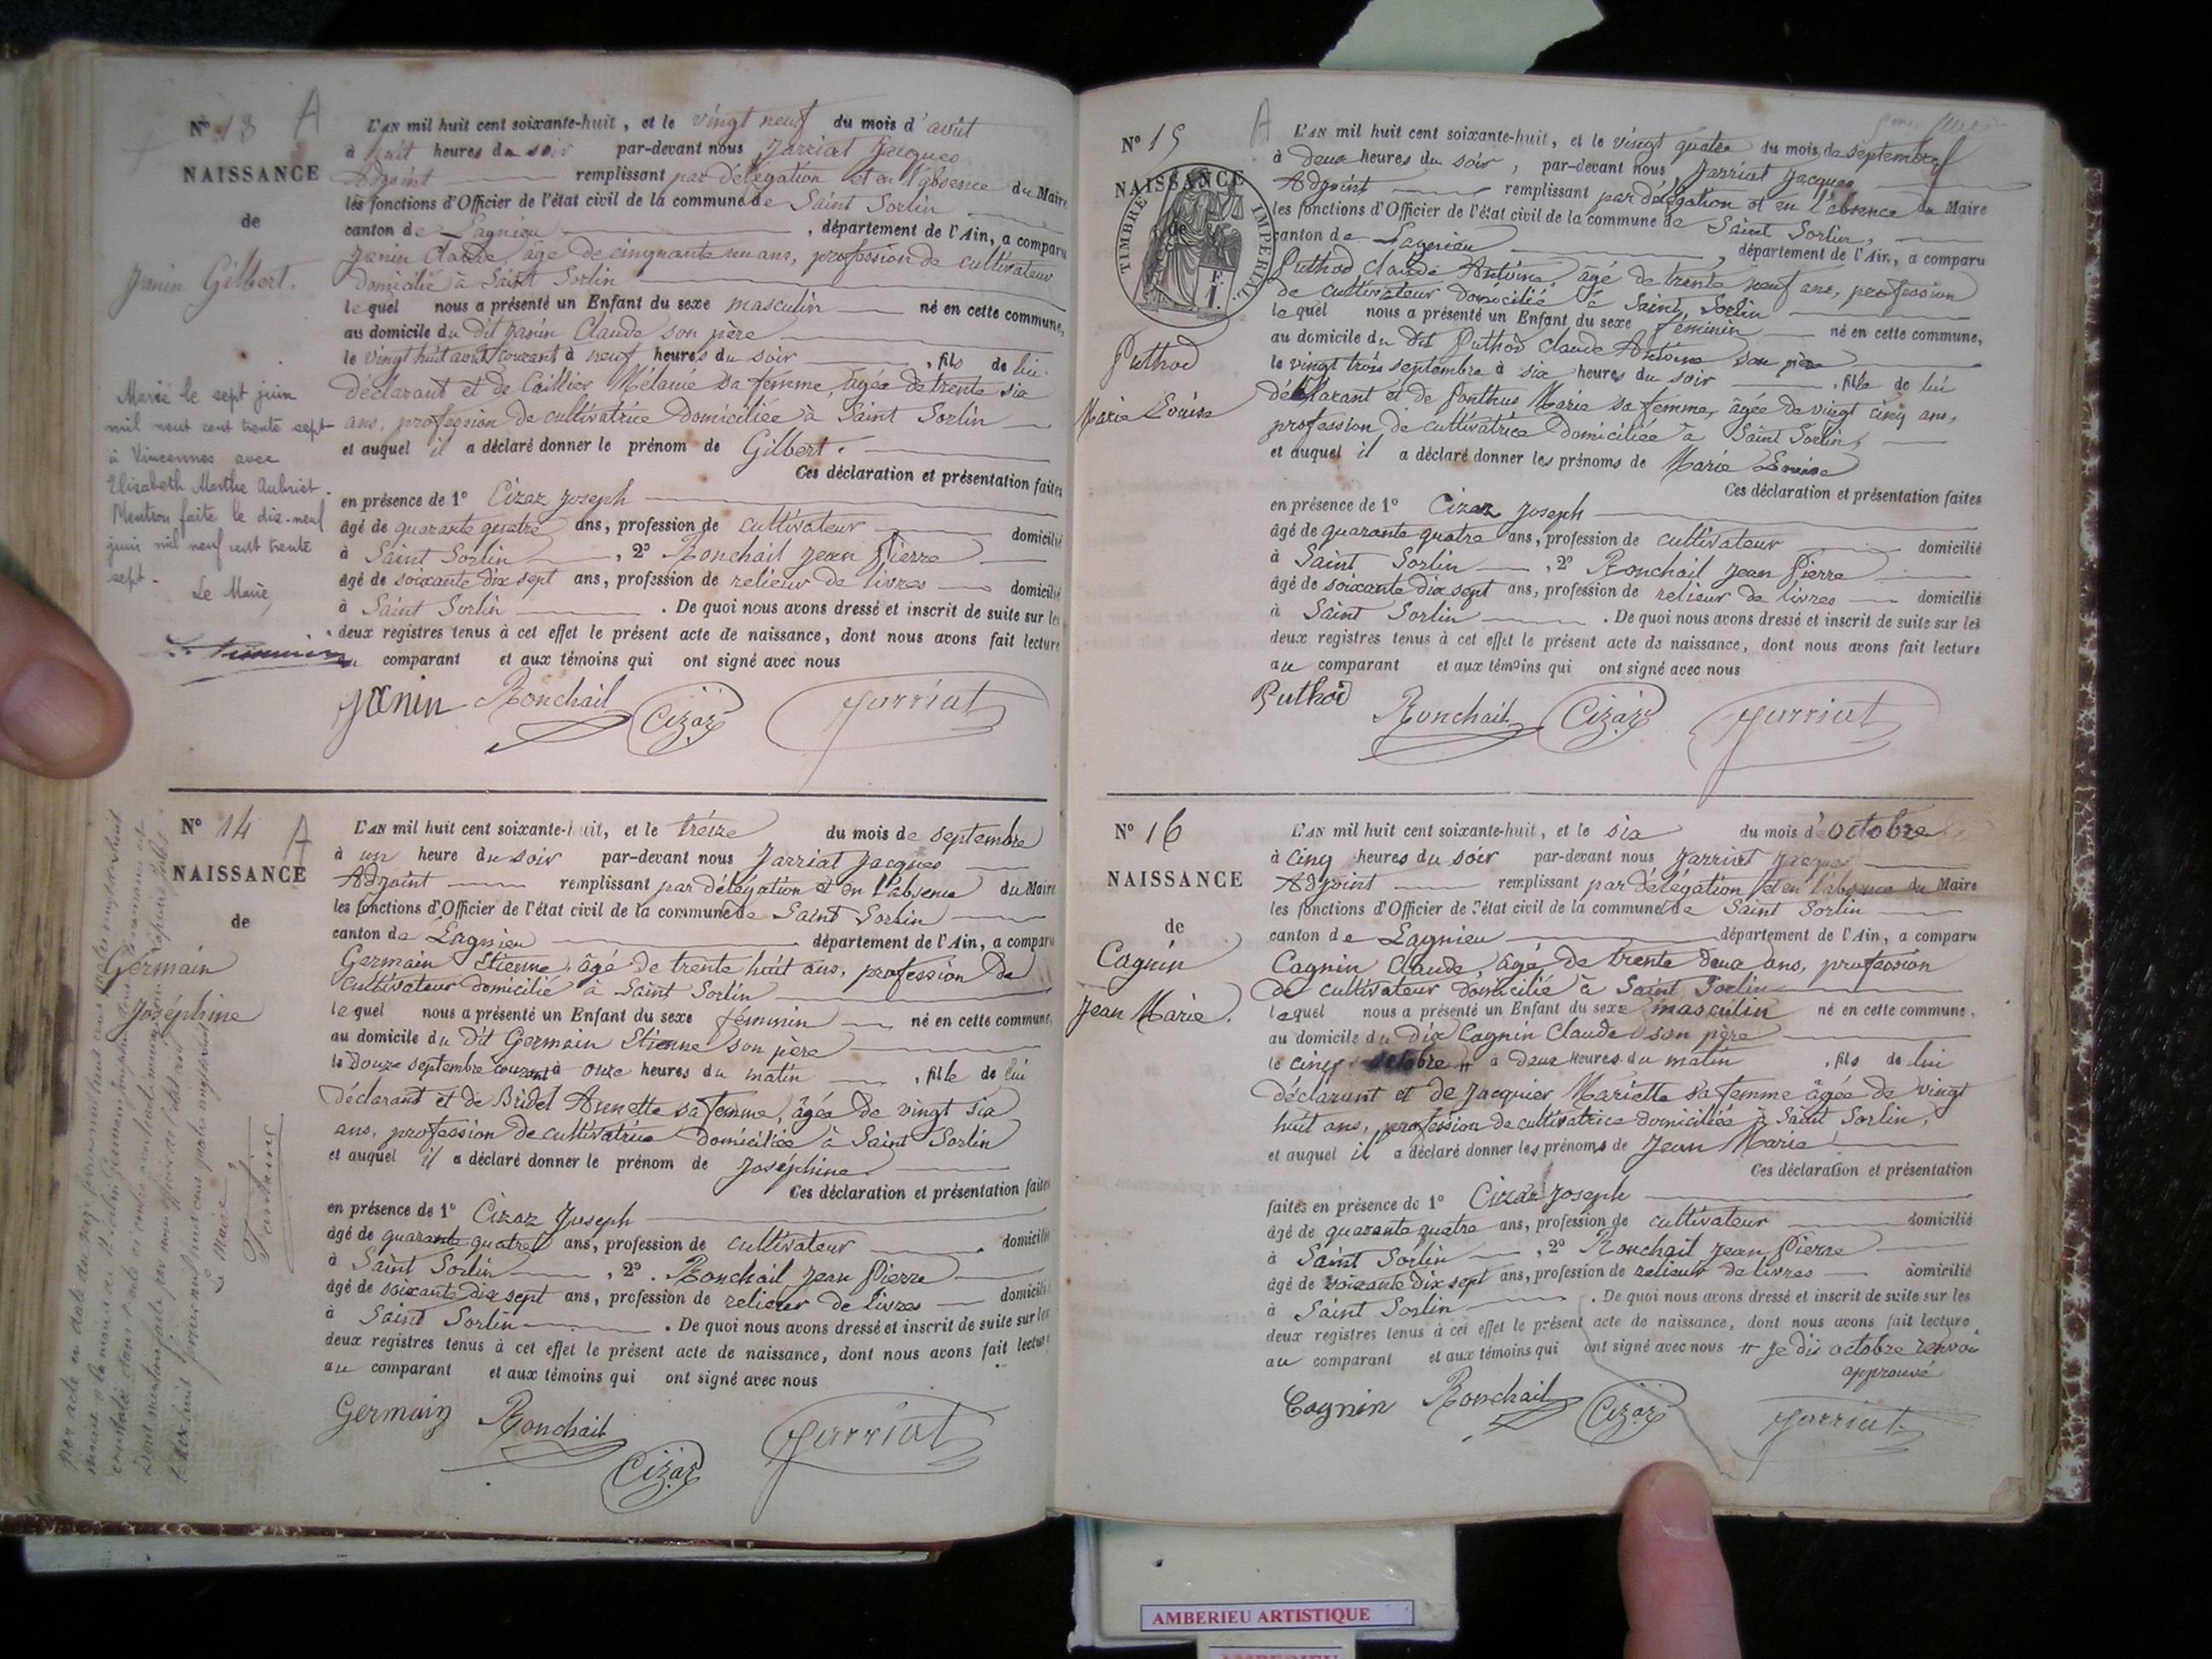 Nº 13 A
NAISSANCE
de
Janin Gilbert.
Marié le sept juin
mil neuf cent trente sept
à Vincennes avec
Elisabeth Marthe Aubriet.
Mention faite le dix-neuf
juin mil neuf cent trente
sept.
Le Maire,
L'AN mil huit cent soixante-huit, et le vingt neuf du mois d'août
à huit heures du soir par-devant nous Jarriat Jacques
Adjoint remplissant par délégation et en l'absence du Maire
les fonctions d'Officier de l'état civil de la commune de Saint Sorlin
canton de Lagnieu, département de l'Ain, a comparu
Janin Claude, âgé de cinquante un ans, profession de cultivateur
domicilié à Saint Sorlin
lequel nous a présenté un Enfant du sexe masculin né en cette commune,
au domicile du dit Janin Claude son père
le vingt huit août courant à neuf heures du soir, fils de lui
déclarant et de Caillier Mélanie sa femme, âgée de trente six
ans, profession de cultivatrice domiciliée à Saint Sorlin
et auquel il a déclaré donner le prénom de Gilbert.
Ces déclaration et présentation faites
en présence de 1º Cizaz Joseph
âgé de quarante quatre ans, profession de cultivateur domicilié
à Saint Sorlin, 2º Ronchail Jean Pierre
âgé de soixante dix sept ans, profession de relieur de livres domicilié
à Saint Sorlin. De quoi nous avons dressé et inscrit de suite sur les
deux registres tenus à cet effet le présent acte de naissance, dont nous avons fait lecture
au comparant et aux témoins qui ont signé avec nous
Janin Ronchail Cizaz Jarriat
Nº 14 A
NAISSANCE
de
Germain
Joséphine
Le Maire
L'AN mil huit cent soixante-huit, et le treize du mois de septembre
à un heure du soir par-devant nous Jarriat Jacques
Adjoint remplissant par délégation et en l'absence du Maire
les fonctions d'Officier de l'état civil de la commune de Saint Sorlin
canton de Lagnieu département de l'Ain, a comparu
Germain Etienne, âgé de trente huit ans, profession de
cultivateur domicilié à Saint Sorlin
lequel nous a présenté un Enfant du sexe féminin né en cette commune,
au domicile du dit Germain Etienne son père
le douze septembre courant à onze heures du matin, fille de lui
déclarant et de Bridet Annette sa femme, âgée de vingt six
ans, profession de cultivatrice domiciliée à Saint Sorlin
et auquel il a déclaré donner le prénom de Joséphine.
Ces déclaration et présentation faites
en présence de 1º Cizaz Joseph
âgé de quarante quatre ans, profession de cultivateur domicilié
à Saint Sorlin, 2º. Ronchail Jean Pierre
âgé de soixante dix sept ans, profession de relieur de livres domicilié
à Saint Sorlin. De quoi nous avons dressé et inscrit de suite sur les
deux registres tenus à cet effet le présent acte de naissance, dont nous avons fait lecture
au comparant et aux témoins qui ont signé avec nous
Germain Ronchail Cizaz Jarriat
Nº 15 A
NAISSANCE
de
TIMBRE IMPERIAL
F. 1.
Puthod
Marie Louise
L'AN mil huit cent soixante-huit, et le vingt quatre du mois de septembre
à deux heures du soir, par-devant nous Jarriat Jacques
Adjoint remplissant par délégation et en l'absence du Maire
les fonctions d'Officier de l'état civil de la commune de Saint Sorlin,
canton de Lagnieu, département de l'Ain, a comparu
Puthod Claude Antoine âgé de trente neuf ans, profession
de cultivateur domicilié à Saint Sorlin
lequel nous a présenté un Enfant du sexe féminin né en cette commune,
au domicile du dit Puthod Claude Antoine son père
le vingt trois septembre à six heures du soir, fille de lui
déclarant et de Ponthus Marie sa femme, âgée de vingt cinq ans,
profession de cultivatrice domiciliée à Saint Sorlin,
et auquel il a déclaré donner les prénoms de Marie Louise
Ces déclaration et présentation faites
en présence de 1º Cizaz Joseph
âgé de quarante quatre ans, profession de cultivateur domicilié
à Saint Sorlin, 2º Ronchail Jean Pierre
âgé de soixante dix sept ans, profession de relieur de livres domicilié
à Saint Sorlin. De quoi nous avons dressé et inscrit de suite sur les
deux registres tenus à cet effet le présent acte de naissance, dont nous avons fait lecture
au comparant et aux témoins qui ont signé avec nous
Puthod Ronchail Cizaz Jarriat
Nº 16
NAISSANCE
de
Cagnin
Jean Marie.
L'AN mil huit cent soixante-huit, et le six du mois d'octobre
à cinq heures du soir par-devant nous Jarriat Jacques
Adjoint remplissant par délégation et en l'absence du Maire
les fonctions d'Officier de l'état civil de la commune de Saint Sorlin
canton de Lagnieu département de l'Ain, a comparu
Cagnin Claude, âgé de trente deux ans, profession
de cultivateur domicilié à Saint Sorlin
lequel nous a présenté un Enfant du sexe masculin né en cette commune.
au domicile du dix Cagnin Claude son père
le cinq octobre # à deux heures du matin, fils de lui
déclarant et de Jacquier Mariette sa femme âgée de vingt
huit ans, profession de cultivatrice domiciliée à Saint Sorlin,
et auquel il a déclaré donner les prénoms de Jean Marie
Ces déclaration et présentation
faites en présence de 1º Cizaz Joseph
âgé de quarante quatre ans, profession de cultivateur domicilié
à Saint Sorlin, 2º Ronchail Jean Pierre
âgé de soixante dix sept ans, profession de relieur de livres domicilié
à Saint Sorlin. De quoi nous avons dressé et inscrit de suite sur les
deux registres tenus à cet effet le présent acte de naissance, dont nous avons fait lecture
au comparant et aux témoins qui ont signé avec nous # je dis octobre renvoi
approuvé
Cagnin Ronchail Cizaz Jarriat
AMBERIEU ARTISTIQUE
AMBERIEU